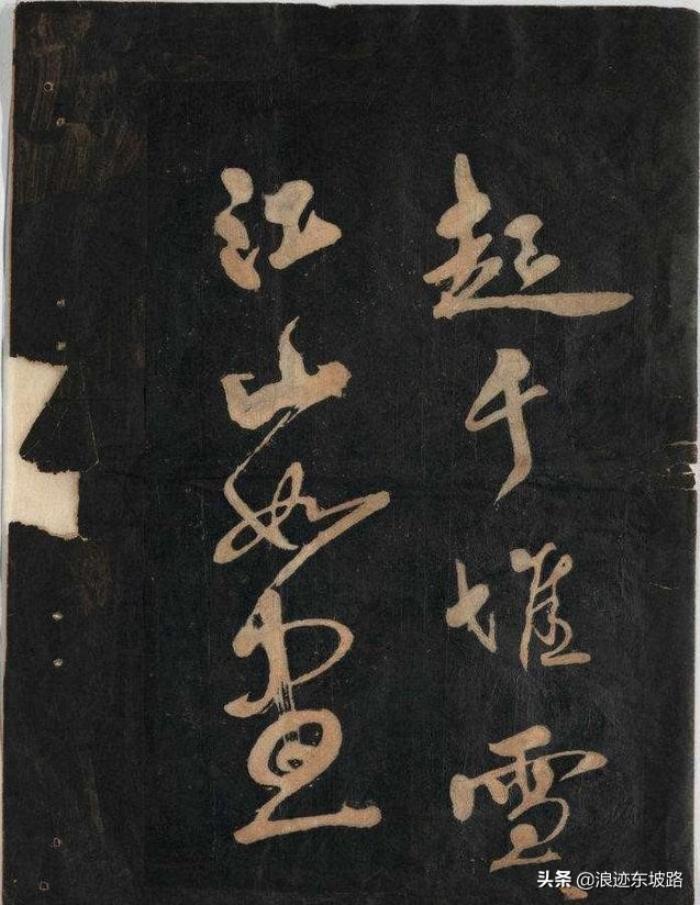 起千堆雪
江山如畫
头条 @浪迹东坡路